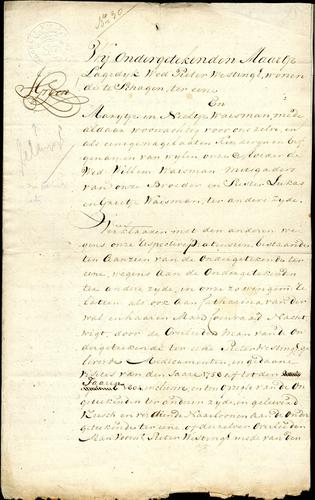 No 30
Wij Ondergetekenden Maartje
Lagedijk Wed Pieter Westing, wonen
de te Schagen, ter eene
En
Marytje en Neeltje Waisman mede
aldaar woonachtig voor ons zelve, en
als eenige nagelaten Kinderen en Erf
genamen van wylen onze Moeder de
Wed Willem Waisman mitsgaders
van onze Broeder en Suster Lukas
en Grietje Waisman, ter andere zyde.
Verklaaden met den anderen we
gens onze Respective pretensien, bestaande
ten Aanzien van de Ondergetekende ter
eene, wegens aan de Ondergetekenden
ter andere zyde, in onze
laten als ook aan Catharina van der
wal en haar Man
wigt, door de Overleden Man van de On
dergetekende ter eene Pieter Westing ge
leverde Medicamenten, en gedaane
visites van den Jaare 1758 tot den
Jaare
incluis, en ten Opzigte van de On
getekenden ter anderen zyde, in geleverd
en verdiende Naailoonen aan de Onder
getekende ter eene of derzelver Overleeden
Man Pieter Westing mede van den